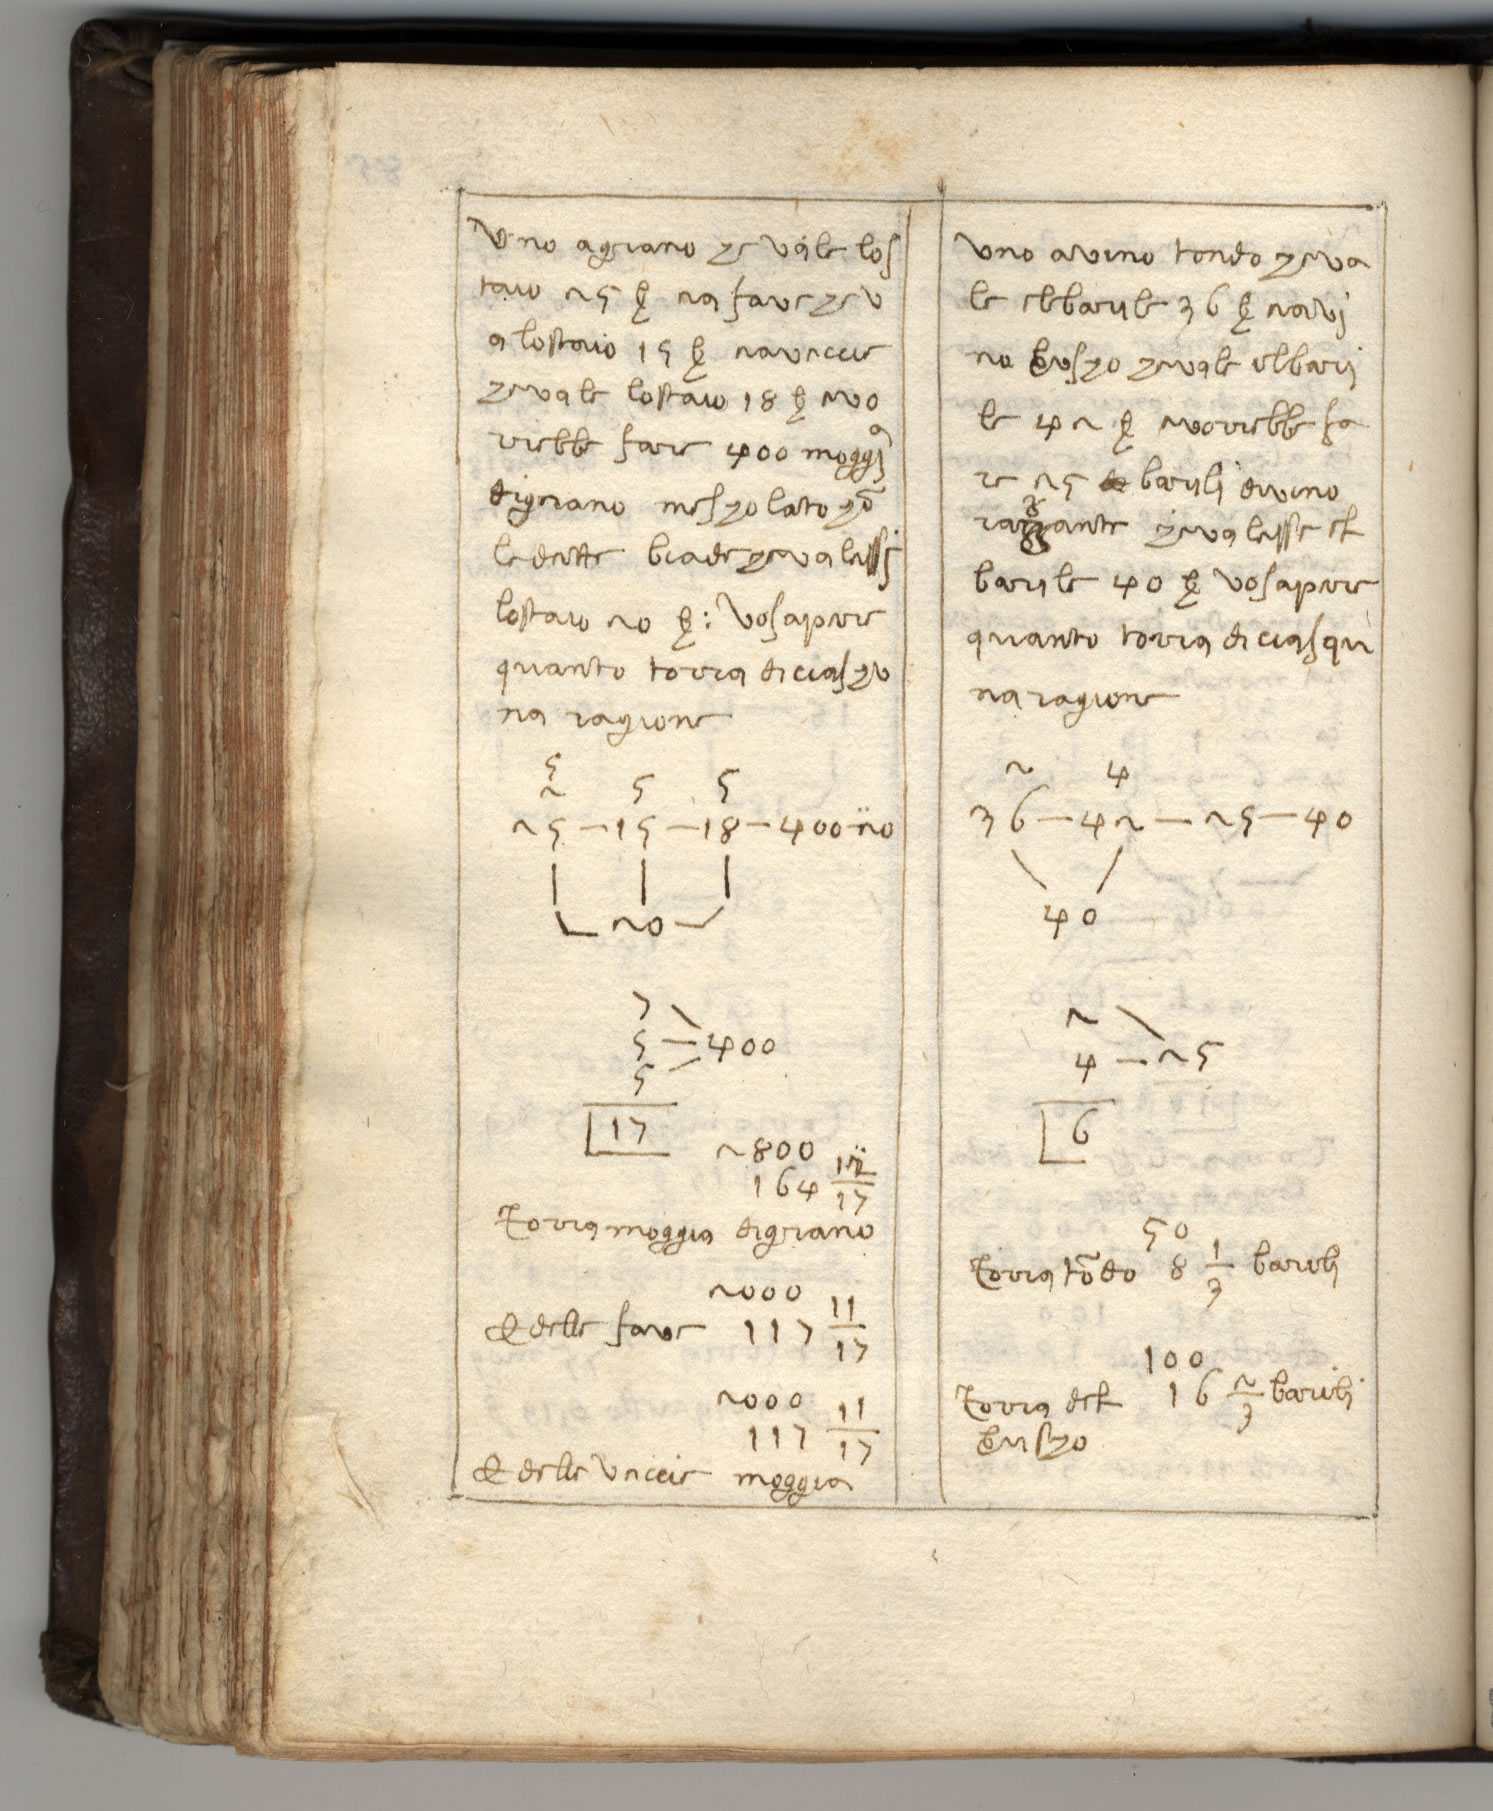 Uno a grano ze vale los
taio 25 β na fave ze v
a lo staio 15 β na veccie
ze vale lo staio 18 β ne vo
rrebbe fare 400 moggia
di grano meszolato zō
le dette biade ze valessi
lo staio 20 β: vo sapere
quanto torra di ciaszu
na ragione
5
2 5 5
25 — 15 — 18 — 400 — 20
20
7
5 — 400
5
17
2800
164 12/17
Torra moggia di grano
2000
E delle fave 117 11/17
2000
117 11/17
E delle veccie moggia
Uno a vino tondo ze va
le el barile 36 β na vi
no bruszo ze vale el bari
le 42 β ne vorrebbe fa
re 25 barili di vino
ze valesse el
barile 40 β vo sapere
quanto torra di ciasqu
na ragione
2 4
36 — 42 — 25 — 40
40
2
4 — 25
6
50
Torra tōdo 8 1/3 barili
100
Torra del 16 2/3 barili
bruszo